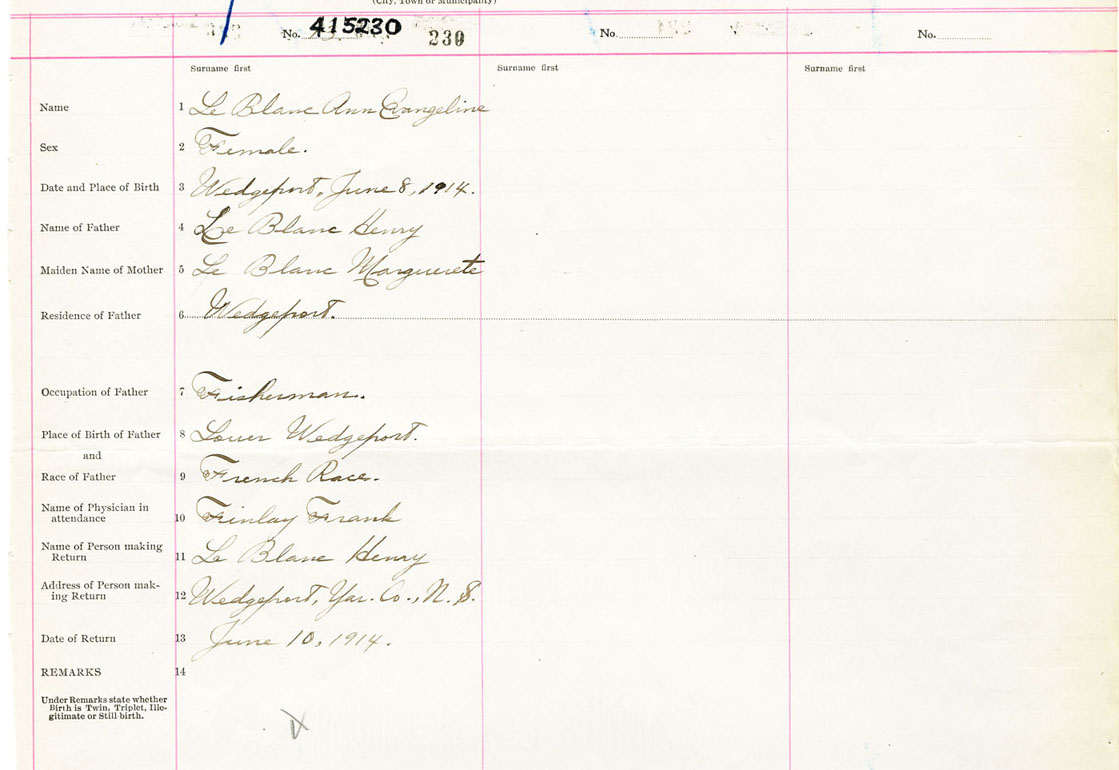 (City, Town or Municipality)
No. 415230 230 No. No.
Surname first Surname first Surname first
Name 1 Le Blanc Ann Evangeline
Sex 2 Female.
Date and Place of Birth 3 Wedgeport, June 8, 1914.
Name of Father 4 Le Blanc Henry
Maiden Name of Mother 5 Le Blanc Marguerete
Residence of Father 6 Wedgeport.
Occupation of Father 7 Fisherman.
Place of Birth of Father 8 Lower Wedgeport.
and
Race of Father 9 French Race.
Name of Physician in
attendance 10 Finlay Frank
Name of Person making
Return 11 Le Blanc Henry
Address of Person mak-
ing Return 12 Wedgeport, Yar. Co., N. S.
Date of Return 13 June 10, 1914.
REMARKS 14
Under Remarks state whether
Birth is Twin, Triplet, Ille-
gitimate or Still birth.